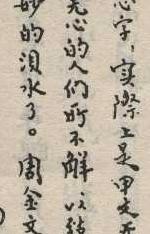 心字，實際上是甲文
心的人们所不解，以
妙的泪水了。周金文